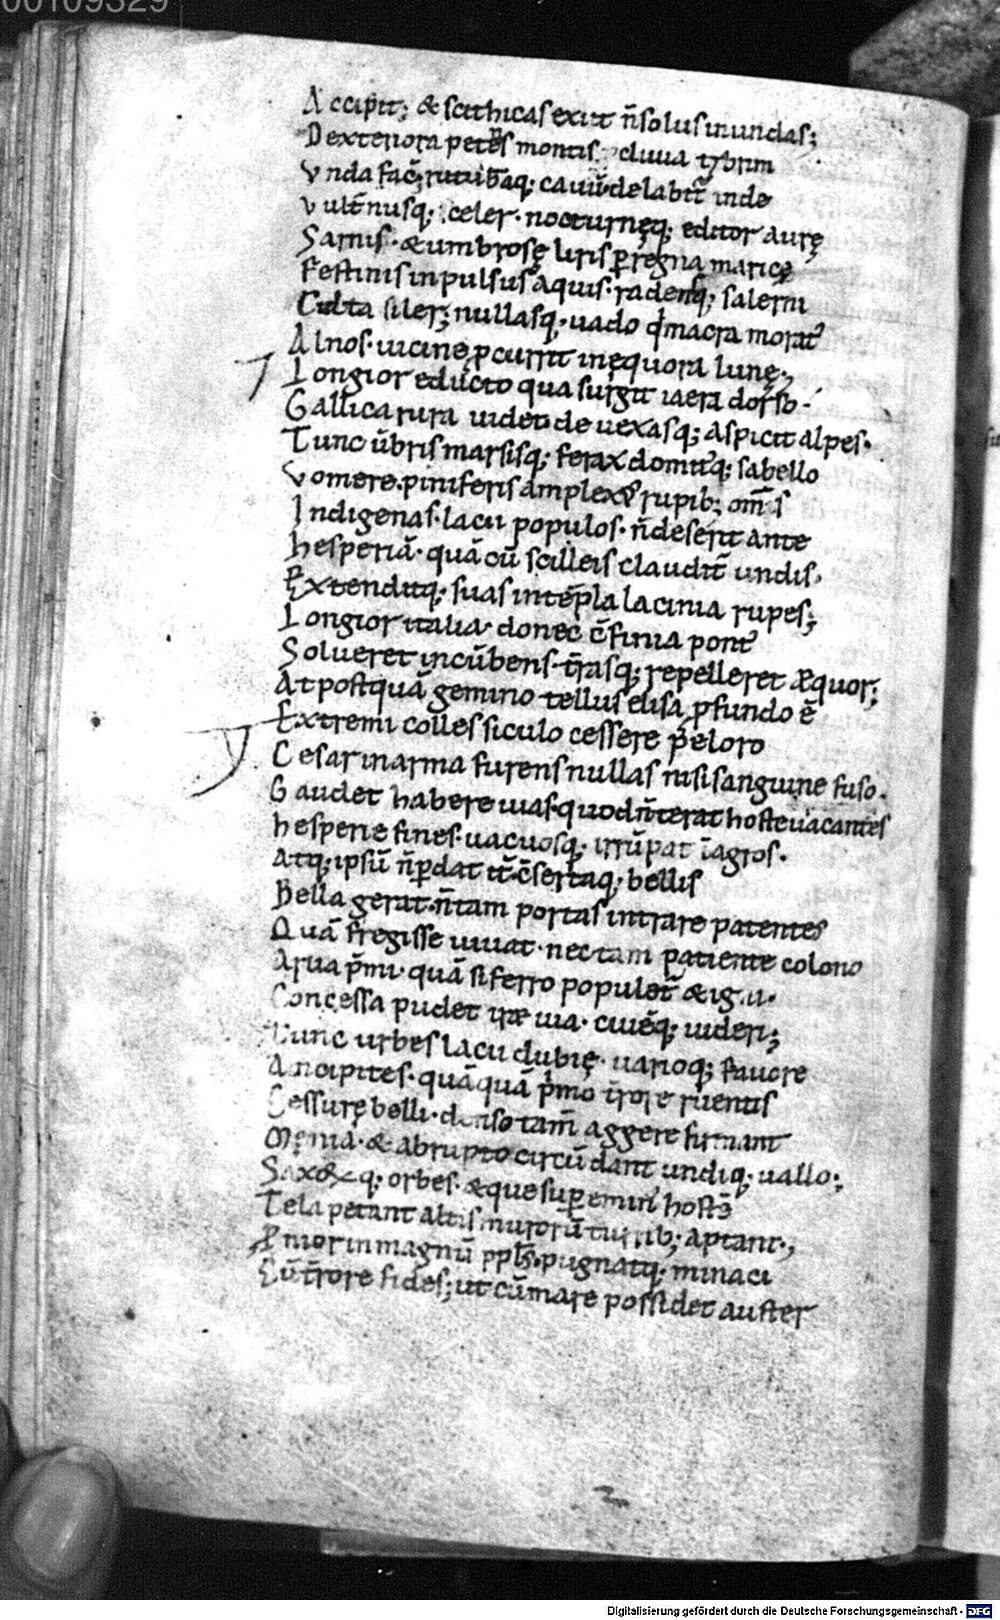 00109329
Accipit; & scithicas exit n̄ solus inundas;
Dexteriora petēs montis decliuia tybrim
Vnda fac̄ rutubāq; cauū delabit̄ inde
Vult̄nusq; celer· nocturnęq; editor aurę
Sarnis· & umbrosę liris ꝑ regna maricę
Festinis inpulsus aquis· radensq; salerni
Culta siler; nullasq; uado q̇ macra morat᷑
Alnos· uicinę ꝓcurrit inęquora lunę;
Longior educto qua surgit iaera dorso·
Gallica rura uidet deuexasq; aspicit alpes·
Tunc ūbris marsisq; ferax domitq; sabello
Vomere· piniferis amplexꝰ rupib; om̄s
Indigenas· lacii populos· n̄ deserit ante
hesperiā· quā cū scilleis claudit̄ undis·
Extenditq; suas in tēpla lacinia rupes;
Longior italia· donec c̄finia pont᷑
Solueret incūbens· t̄rasq; repelleret æquor;
At postquā gemino tellus elisa ꝓfundo ē
Extremi colles siculo cessere peloro
Cesar in arma furens nullas nisi sanguine fuso·
Gaudet habere uias· quod n̄ terat hoste uacantes
hesperie fines· uacuosq; irrūpat īagros·
Atq; ipsū n̄ ꝑdat it̄· c̄sertaq; bellis
Bella gerat· n̄ tam portas intrare patentes
Quā fregisse iuuat· nec tam patiente colono
Arua p̄mi· quā si ferro populet̄ & igni·
Concessa pudet ire uia· ciuēq; uideri;
Tunc urbes lacii dubię· uarioq; fauore
Ancipites· quāquā p̄mo t̄rore ruentis
Cessurę belli· denso tam̄ aggere firmant
Męnia· & abrupto circūdant undiq; uallo;
Saxoꝝq; orbes· & que sup̄ emin᷑ hostē
Tela petant altis murorū turrib; aptant·;
Pnior in magnū ppls· pugnatq; minaci
Cū t̄rore fides; ut cū mare possidet auster
Digitalisierung gefördert durch die Deutsche Forschungsgemeinschaft - DFG